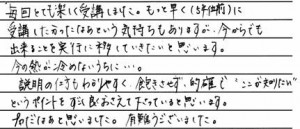 毎回とても楽しく受講しました。もっと早く(5年前)に
受講したかったなあという気持ちもありますが、今からでも
出来ることを実行に移していきたいと思います。
今の熱が冷めないうちに…。
説明の仕方もわかりやすく、飽きさせず、的確で“ここが知りたい”
というポイントをずい分おさえて下さっていると思います。
プロだなあと思いました。有難うございました。